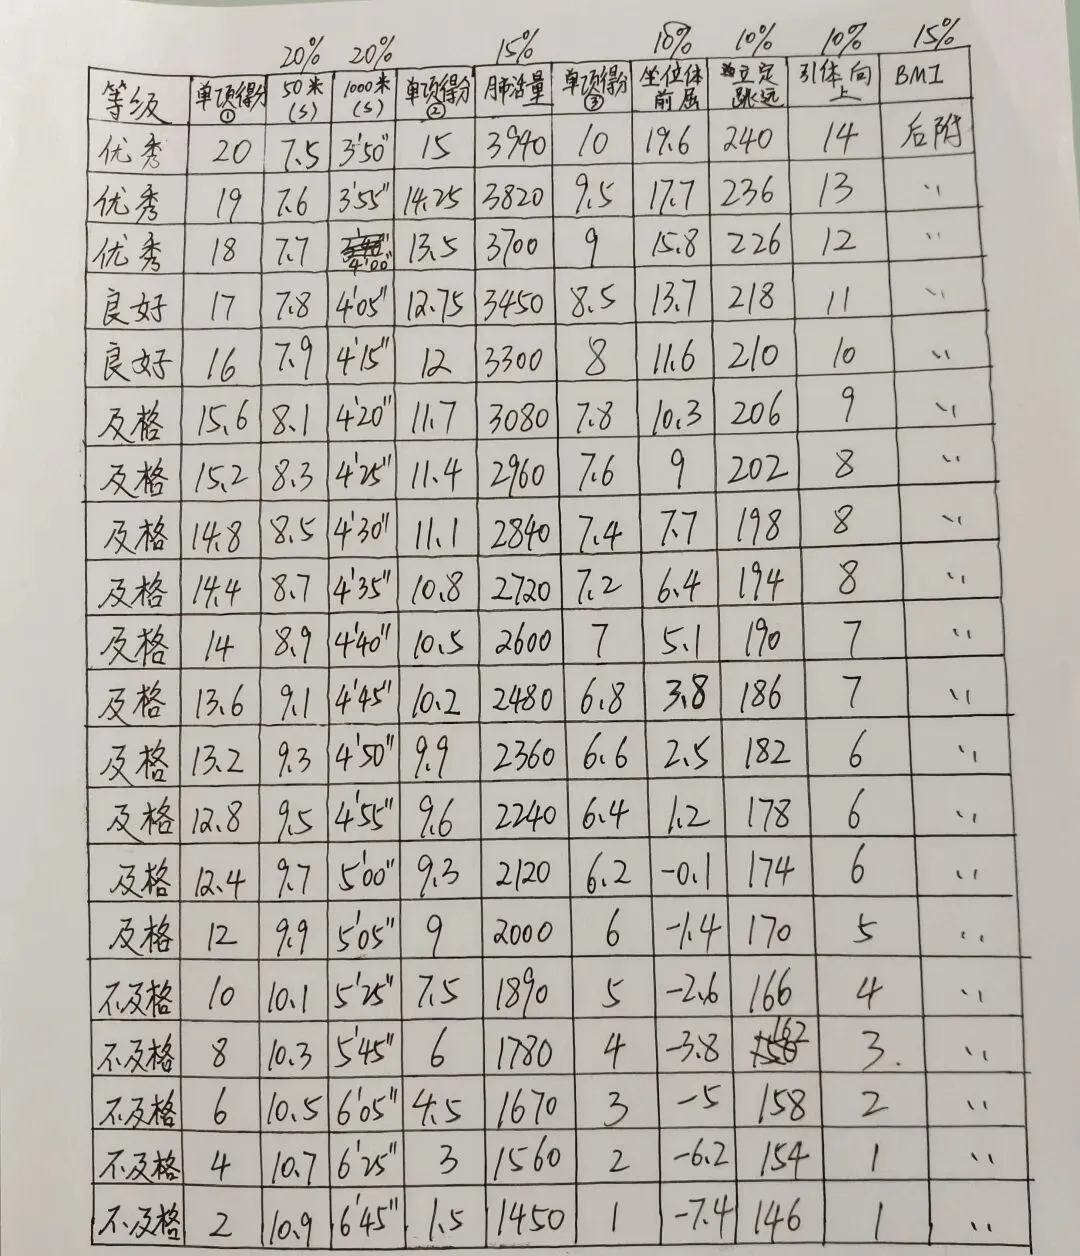 20% 20% 15% 10% 10% 10% 15%
等级 单项得分① 50米(s) 1000米(s) 单项得分② 肺活量 单项得分③ 坐位体前屈 立定跳远 引体向上 BMI
优秀 20 7.5 3'50" 15 3940 10 19.6 240 14 后附
优秀 19 7.6 3'55" 14.25 3820 9.5 17.7 236 13 〃
优秀 18 7.7 4'00" 13.5 3700 9 15.8 226 12 〃
良好 17 7.8 4'05" 12.75 3450 8.5 13.7 218 11 〃
良好 16 7.9 4'15" 12 3300 8 11.6 210 10 〃
及格 15.6 8.1 4'20" 11.7 3080 7.8 10.3 206 9 〃
及格 15.2 8.3 4'25" 11.4 2960 7.6 9 202 8 〃
及格 14.8 8.5 4'30" 11.1 2840 7.4 7.7 198 8 〃
及格 14.4 8.7 4'35" 10.8 2720 7.2 6.4 194 8 〃
及格 14 8.9 4'40" 10.5 2600 7 5.1 190 7 〃
及格 13.6 9.1 4'45" 10.2 2480 6.8 3.8 186 7 〃
及格 13.2 9.3 4'50" 9.9 2360 6.6 2.5 182 6 〃
及格 12.8 9.5 4'55" 9.6 2240 6.4 1.2 178 6 〃
及格 12.4 9.7 5'00" 9.3 2120 6.2 -0.1 174 6 〃
及格 12 9.9 5'05" 9 2000 6 -1.4 170 5 〃
不及格 10 10.1 5'25" 7.5 1890 5 -2.6 166 4 〃
不及格 8 10.3 5'45" 6 1780 4 -3.8 162 3 〃
不及格 6 10.5 6'05" 4.5 1670 3 -5 158 2 〃
不及格 4 10.7 6'25" 3 1560 2 -6.2 154 1 〃
不及格 2 10.9 6'45" 1.5 1450 1 -7.4 146 1 〃